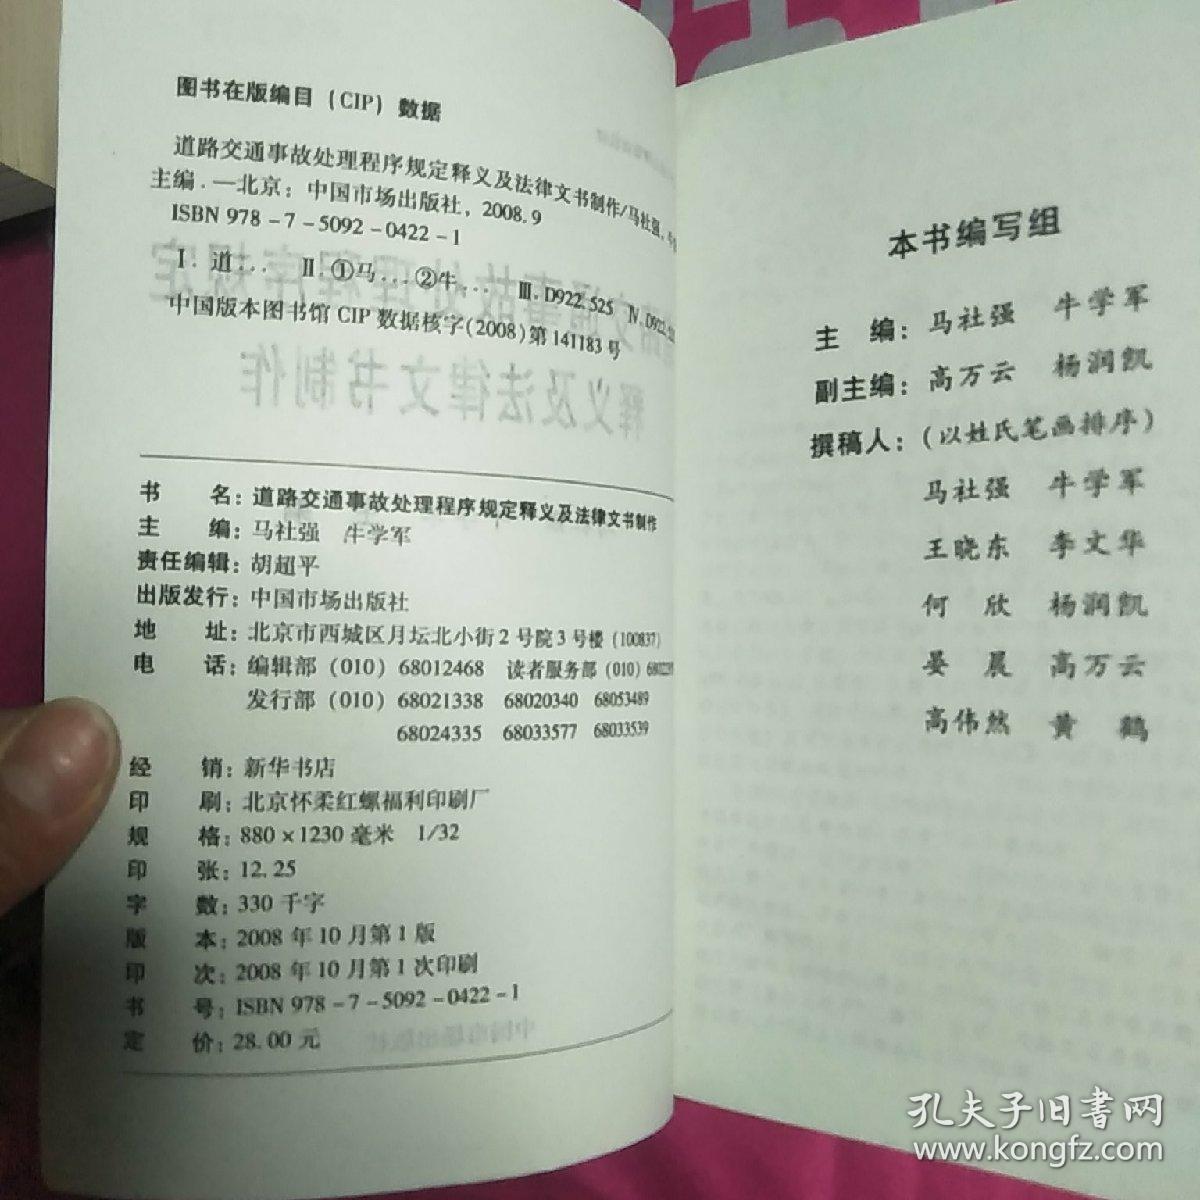 图书在版编目（CIP）数据
道路交通事故处理程序规定释义及法律文书制作/马社强，牛
主编．—北京：中国市场出版社，2008.9
ISBN 978-7-5092-0422-1
Ⅰ.道… Ⅱ.①马…②牛… Ⅲ.D922.525 Ⅳ.D922
中国版本图书馆CIP数据核字(2008)第141183号
书 名：道路交通事故处理程序规定释义及法律文书制作
主 编：马社强 牛学军
责任编辑：胡超平
出版发行：中国市场出版社
地 址：北京市西城区月坛北小街2号院3号楼（100837）
电 话：编辑部（010）68012468 读者服务部（010）68022
发行部（010）68021338 68020340 68053489
68024335 68033577 68033539
经 销：新华书店
印 刷：北京怀柔红螺福利印刷厂
规 格：880×1230毫米 1/32
印 张：12.25
字 数：330千字
版 本：2008年10月第1版
印 次：2008年10月第1次印刷
书 号：ISBN 978-7-5092-0422-1
定 价：28.00元
本书编写组
主 编：马社强 牛学军
副主编：高万云 杨润凯
撰稿人：（以姓氏笔画排序）
马社强 牛学军
王晓东 李文华
何 欣 杨润凯
晏 晨 高万云
高伟然 黄 鹤
孔夫子旧书网
www.kongfz.com